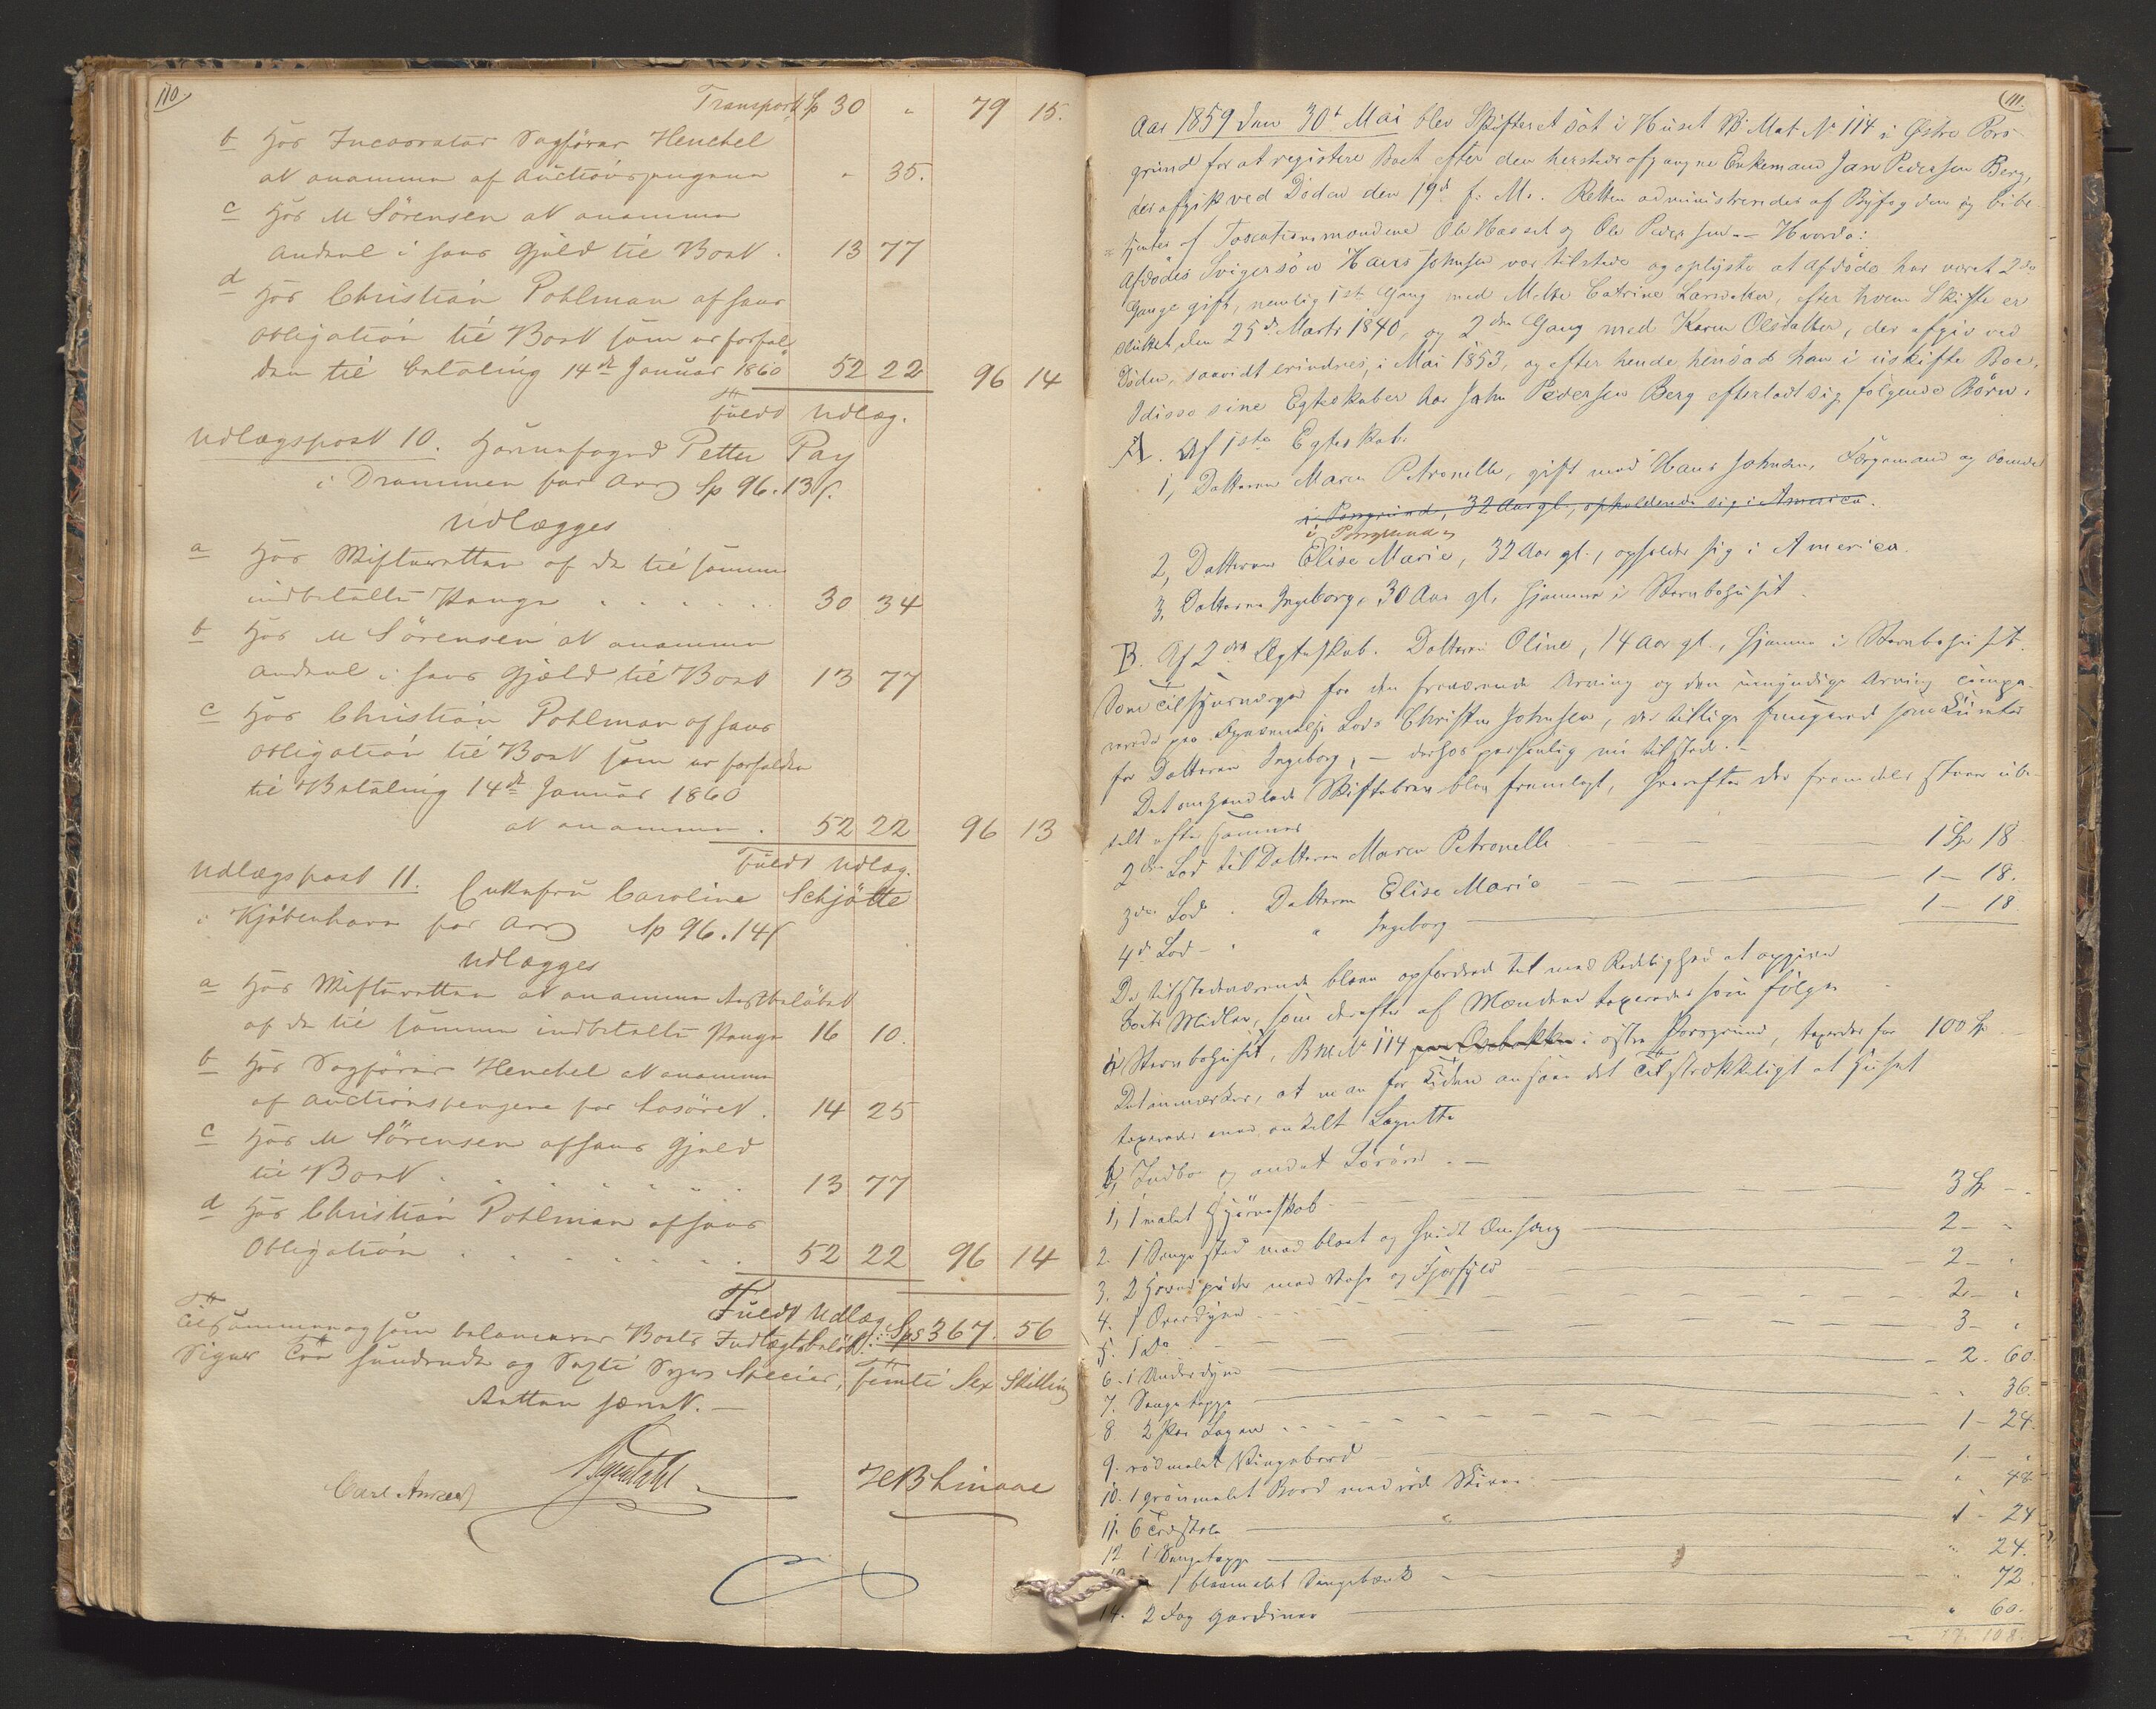 110
Transport Sp 30 " 79 15.
b hos Incassator Sagförer Henchel
at anamme af Auctionspengene " 35.
c hos M Sörensen at anamme
Andeel i hans Gjeld til Boet . 13 77
d hos Christian Pohlman af hans
Obligation til Boet som er forfal-
den til betaling 14de Januar 1860 52 22 96 14
Fuldt Udlæg.
Udlægspost 10. Petter Pay
i Drammen for Arv Sp 96. 13 s.
Udlægges
a hos Skifteretten af de til samme
indbetalte Penge . . . . . . 30 34
b hos M Sörensen at anamme
Andeel i hans Gjæld til Boet 13 77
c hos Christian Pohlman af hans
Obligation til Boet som er forfalden
til Betaling 14de Januar 1860
at anamme . 52 22 96 13
Fuldt Udlæg.
Udlægspost 11. Enkefru Caroline Schjötte
i Kjöbenhavn for Arv Sp 96. 14 s
Udlægges
a hos Skifteretten at anamme Restbelöbet
af de til samme indbetalte Penge 16 10.
b hos Sagförer Henchel at anamme
af Auctionspengene for Lösöret . 14 25
c hos M Sörensen af hans Gjeld
til Boet . . . . . . . 13 77
d hos Christian Pohlman af hans
Obligation . . . . . . 52 22 96 14
Fuldt Udlæg
Tilsammen som balancerer Boets Indtægtsbelöb: Sps 367. 56
Siger Tre hundrede og Sexti Syv Species, Femti Sex Skilling
Retten hævet. —
Carl HB Linaae
111.
Aar 1859 den 30te Mai blev Skifteret sat i Huset B: Mat No 114 i Østre Pors-
grund for at registere Boet efter den hersteds afgangne Enkemand Jan Pedersen Berg,
der afgik ved Döden den 19de f: M:. Retten administreredes af Byfogden og bibe-
tjentes af Taxationsmændene Ole Hasset og Ole Pedersen. — Hvorda:
Afdödes Svigersön Hans Johnsen var tilstede og oplyste at Afdöde har været 2de
Gange gift, nemlig 1ste Gang med Mette Catrine Larsdatter, efter hvem Skifte er
sluttet den 25de Marts 1840, og 2den Gang med Karen Olsdatter, der afgik ved
Döden, saavidt erindres, i Mai 1853, og efter hende hensad han i uskiftet Boe.
I disse sine Egteskaber har John Pedersen Berg efterladt sig fölgende Börn:
A. Af 1ste Egteskab:
1, Datteren Maren Petronelle, gift med Hans Johnsen, Færgemand og boende
i Porsgrund, 32 Aar gl., opholdende sig i America.
i Porsgrund
2, Datteren Elise Marie, 32 Aar gl., opholder sig i America.
3, Datteren Ingeborg, 30 Aar gl, hjemme i Stervbohuset.
B. Af 2det Ægteskab. Datteren Oline, 14 Aar gl., hjemme i Stervbohuset.
Som Tilsynsværge for den fraværende Arving og den umyndige Arving compa-
rerede paa Opnævnelse Lods Christen Johnsen, der tillige fungerede som Curator
for Datteren Ingeborg, — derhos personlig nu tilstede. —
Det omhandlede Skiftebrev blev fremlagt, hvorefter der fremdeles staar ube-
talt efter samme
2den Lod til Datteren Maren Petronelle 1 Sp 18
3die Lod . Datteren Elise Marie 1 — 18.
4de Lod — " " Ingeborg 1 — 18
De tilstedeværende bleve opfordrede til med Redelighed at opgive
Boets Midler, som derefter af Mændene taxeredes som fölger
a, Stervbohuset, B M No 114 i östre Porsgrund, taxeredes for 100 Sp
Det anmærkes, at man for Tiden ansaae det tilstrækkeligt at Huset
taxeredes med enkelt Lagrette
b, Indbo og andet Lösöre. —
1, 1 malet Hjörneskab 3 Sp —
2. 1 Sengested med blaat og hvidt Omhæng 2 — "
3. 2 Hovedpuder med Vaar og Fjærfyld 2 — "
4. 1 Overdyne 2 — "
5. 1 Do 3 — "
6. 1 Underdyne 2 . 60.
7. Sengeteppe " 36.
8 2 Par Lagen 1 — 24.
9. rödmalet Klingebord 1. — "
10. 1 grönmalet Bord med röd Skive " 48
11. 6 Træstole 1 — 24
12. 1 Sengeteppe " 24.
13. 1 blaamalet Sengebænk " 72.
14. 2 Fag Gardiner " 60.